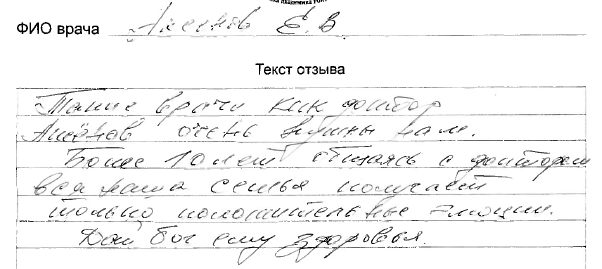 ФИО врача Аксёнов Е.В.
Текст отзыва
Такие врачи как доктор
Аксёнов очень нужны нам.
Более 10 лет общаясь с доктором
вся наша семья получает
только положительные эмоции.
Дай бог ему здоровья.